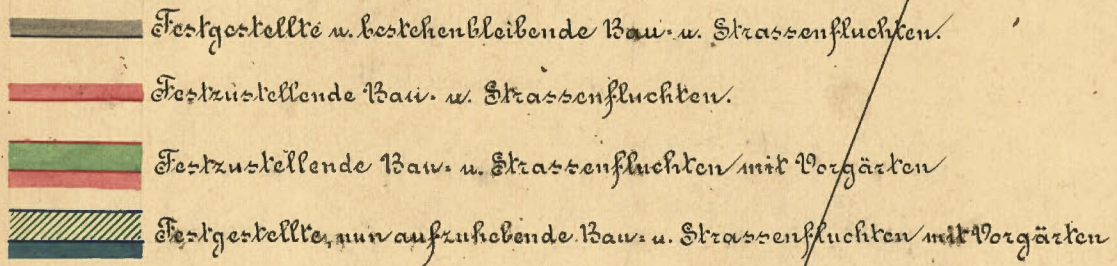 Festgestellte u. bestehenbleibende Bau- u. Strassenfluchten.
Festzustellende Bau- u. Strassenfluchten.
Festzustellende Bau- u. Strassenfluchten mit Vorgärten
Festgestellte, nun aufzuhebende Bau- u. Strassenfluchten mit Vorgärten